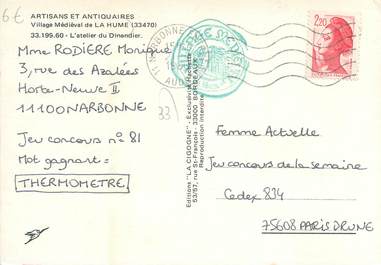 6€
ARTISANS ET ANTIQUAIRES
Village Médiéval de LA HUME (33470)
33.199.60 - L'atelier du Dinandier.
Mme RODIÈRE Monique
3, rue des Azalées
Horte-Neuve II
11100 NARBONNE
Jeu concours n° 81
Mot gagnant:
THERMOMETRE
33
Editions "LA CIGOGNE" - Exclusivité Hachette
53/57, rue St-François, 33000 BORDEAUX
Reproduction interdite
NARBONNE
2,20
Femme Actuelle
Jeu concours de la semaine
Cedex 834
75608 PARIS BRUNE